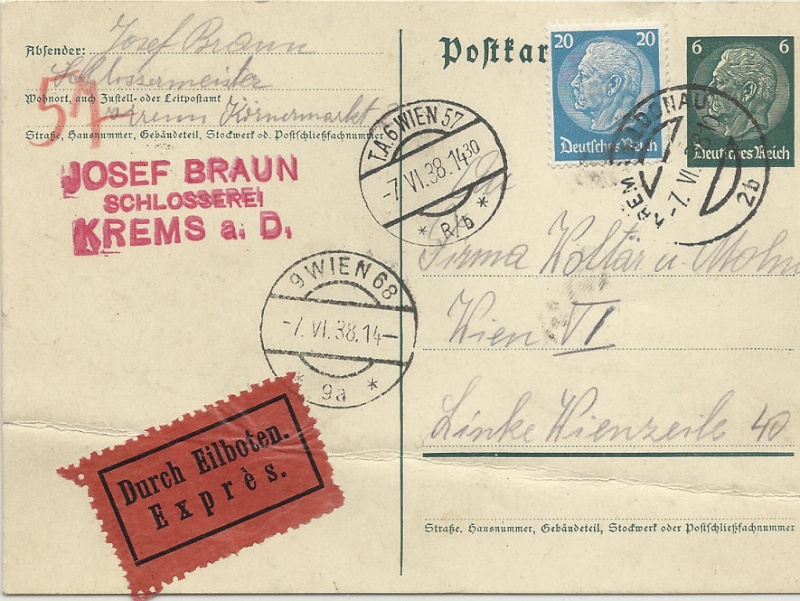 Absender: Josef Braun
Schlossermeister
Wohnort, auch Zustell- oder Leitpostamt
Krems Körnermarkt
Straße, Hausnummer, Gebäudeteil, Stockwerk od. Postschließfachnummer
57
JOSEF BRAUN
SCHLOSSEREI
KREMS a. D.
Postkar
20 20
Deutsches Reich
6 6
Deutsches Reich
T.A.6 WIEN 57
-7.VI.38.1430
* R/b *
DONAU
-7.VI.
2b
9 WIEN 68
-7.VI.38.14-
* 9a *
An
Firma Koltár u
Wien VI
Linke Wienzeile 40
Straße, Hausnummer, Gebäudeteil, Stockwerk oder Postschließfachnummer
Durch Eilboten.
Exprès.